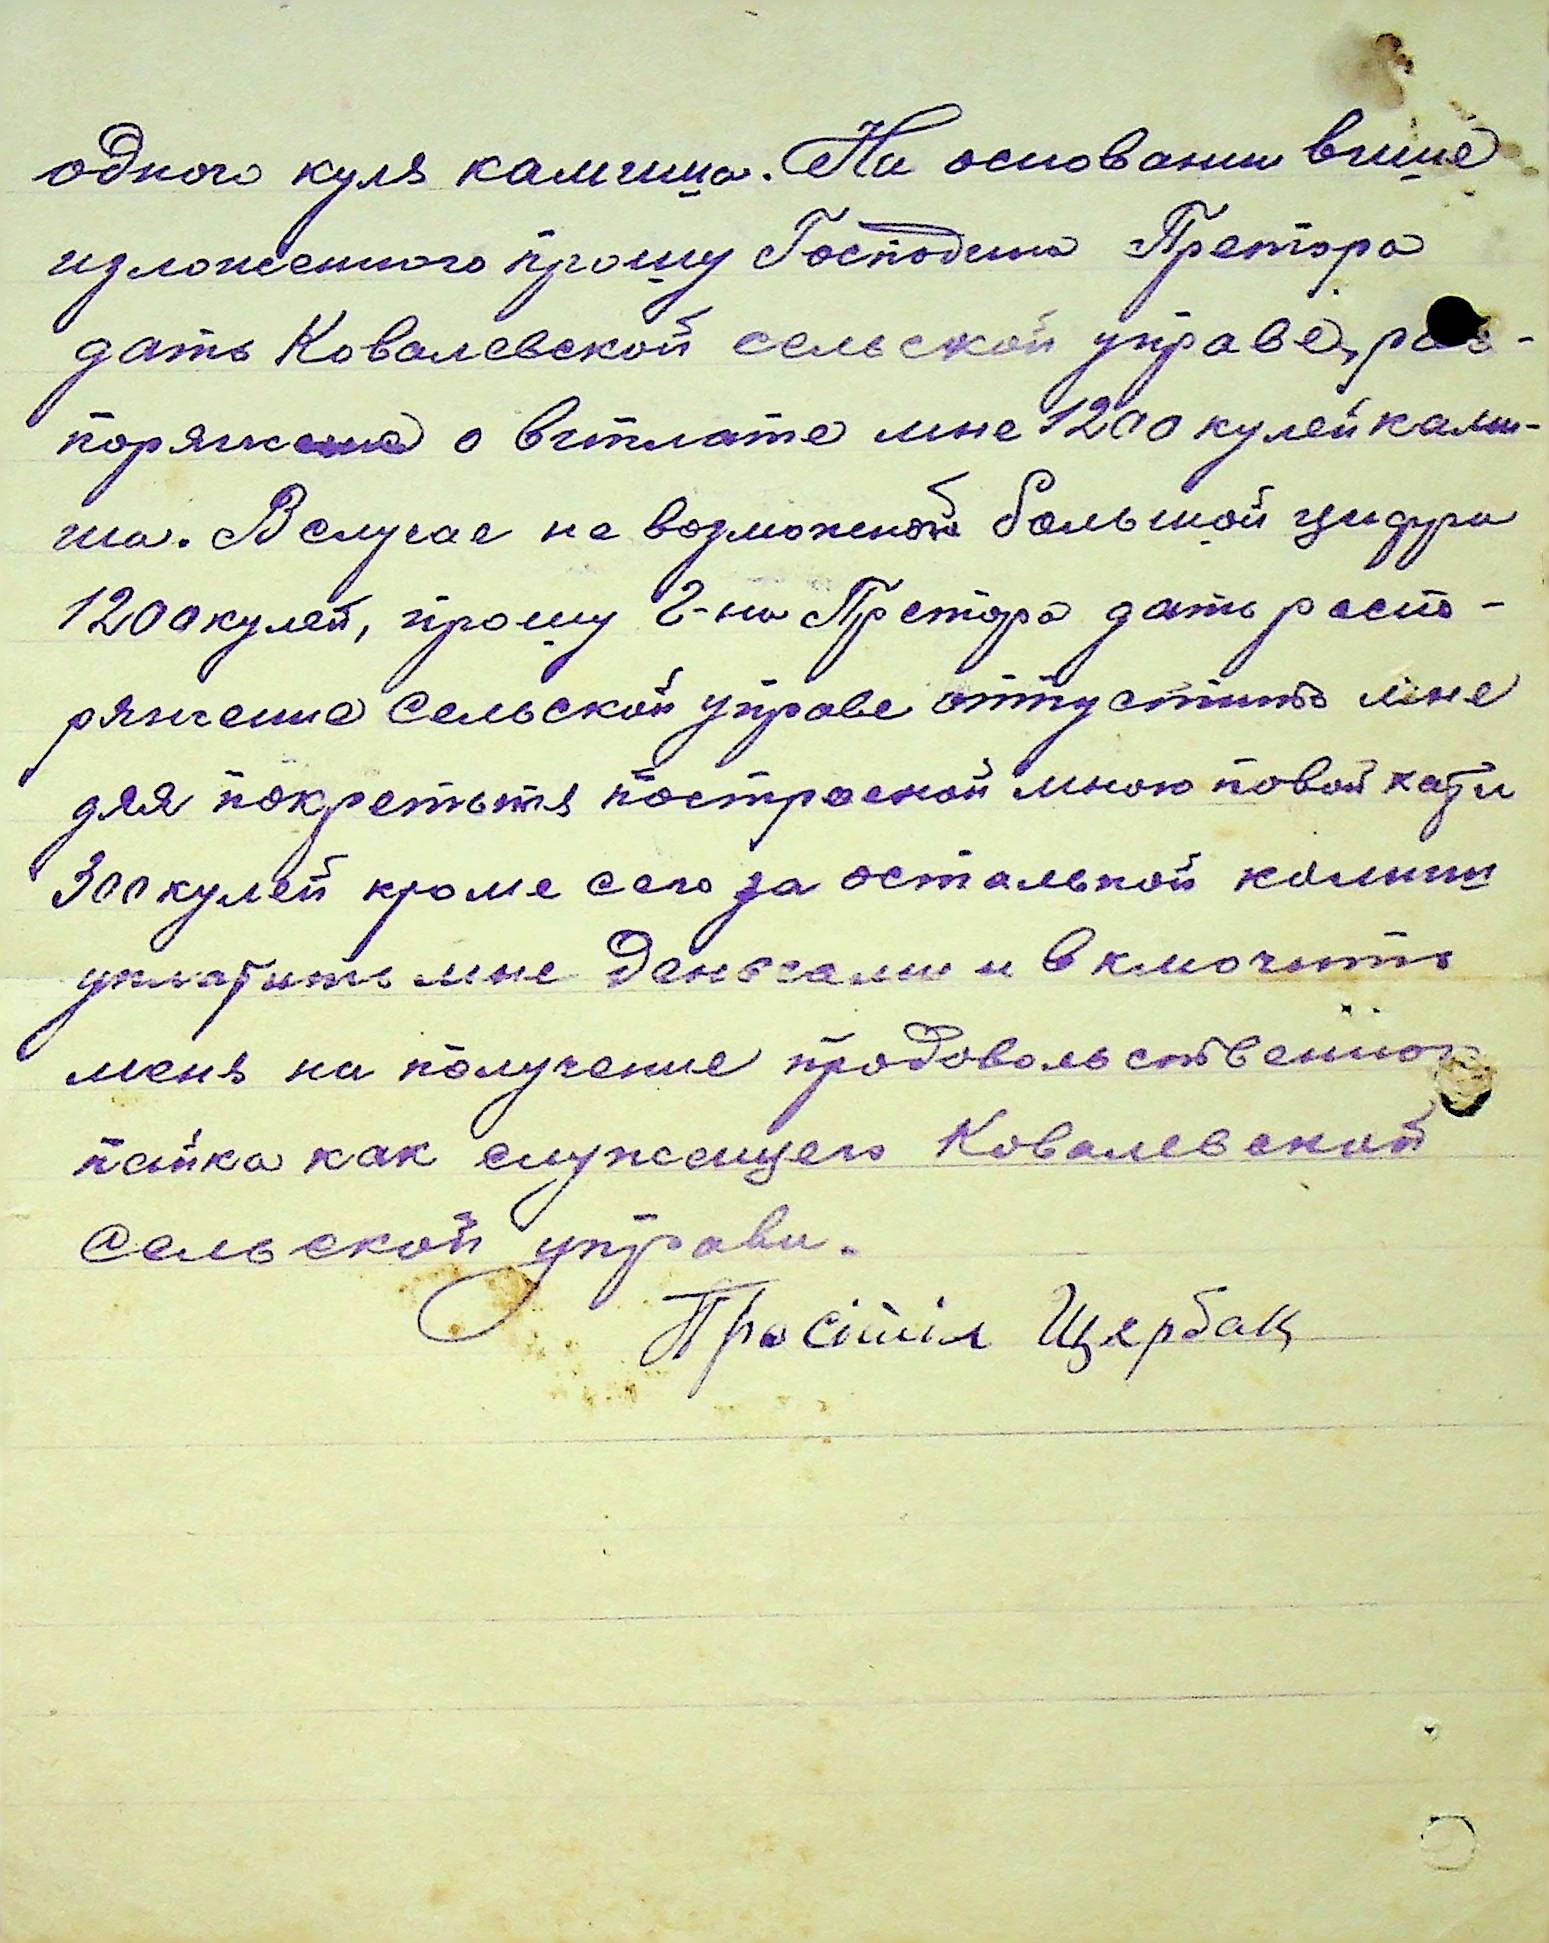 одного куля камиша. На основании више
изложенного прошу Господина Претора
дать Ковалевской сельской управе, рас-
поряжение о виплате мне 1200 кулей ками-
ша. В случае не возможной большой цифри
1200 кулей, прошу г-на Претора дать распо-
ряжение сельской управе отпустить мне
для покретьтя построеной мною новой хати
300 кулей кроме сего за остальной камиш
уплатить мне деньгами и включить
меня на получение продовольственного
пайка как служащего Ковалевской
сельской управи.
Просітіл Щербак